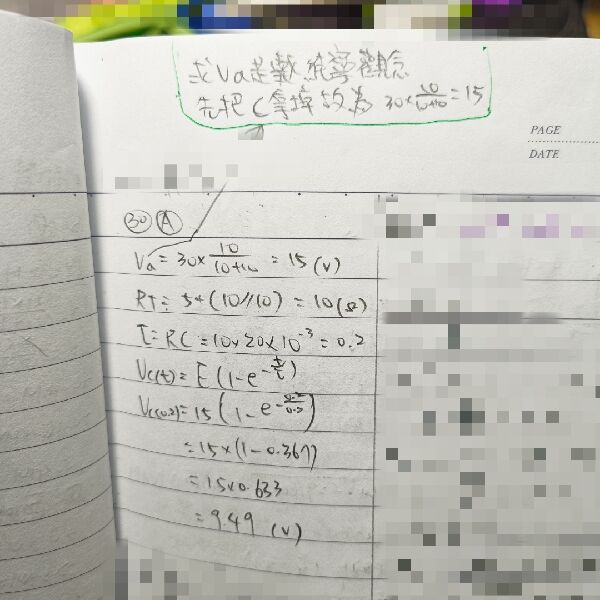 求Va是戴維寧觀念
先把C拿掉 故為 30×10/(10+10)=15
PAGE
DATE
30 A
Va = 30×10/(10+10) = 15 (V)
RT = 5+(10//10) = 10(Ω)
τ=RC=10×20×10^-3=0.2
Vc(t)=E(1-e^-t/τ)
Vc(0.2)=15(1-e^-0.2/0.2)
=15×(1-0.367)
=15×0.633
=9.49 (V)